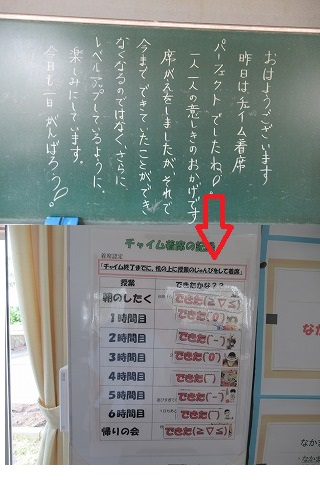 おはようございます
昨日はチャイム着席
パーフェクトでしたね!
一人一人の意しきのおかげです
席がえをしましたが、それで
今までできていたことができ
なくなるのではなく、さらに
レベルアップしているように、
楽しみにしています。
今日も一日がんばろう!
チャイム着席の記
「チャイム終了までに、机の上に授業のじゅんびをして着席」
授業 できたかな??
朝のしたく できた(≧▽≦)
1時間目 できた(^0^)
2時間目 できた(^-^)
3時間目 できた(^0^)
4時間目 できた(^^)
5時間目 できた(^-^)
6時間目 できた(^^)
帰りの会 できた(≧▽≦)
なか
なかま